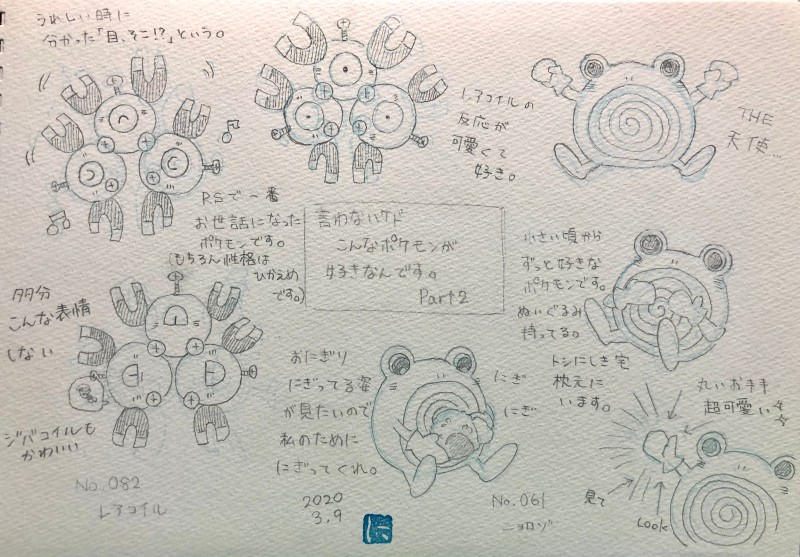 うれしい時に
分かった「目、そこ!?」という。
レアコイルの
反応が
可愛くて
好き。
THE
天使…
RSで一番
お世話になった
ポケモンです。
(もちろん性格は
ひかえめ
です。)
言わないケド
こんなポケモンが
好きなんです。
Part2
小さい頃から
ずっと好きな
ポケモンです。
ぬいぐるみ
持ってる。
トシにしき宅
枕元に
います。
多分
こんな表情
しない
ジバコイルも
かわいい
おにぎり
にぎってる姿
が見たいので
私のために
にぎってくれ。
にぎ
にぎ
丸いお手手
超可愛い
見て
Look
No.082
レアコイル
2020
3.9
No.061
ニョロゾ